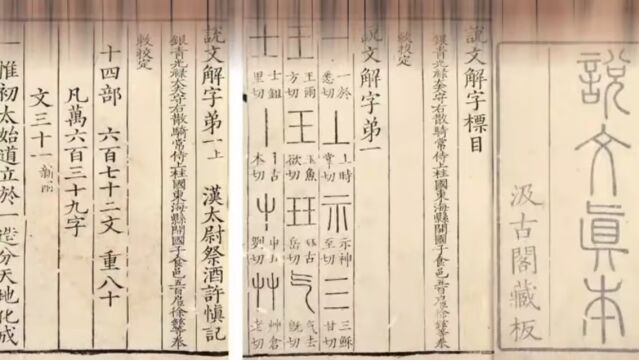 說文眞本
汲古閣藏板
說文解字標目
銀青光祿大夫守右散騎常侍上柱國東海縣開國子食邑五百戶徐鉉等奉
敕校定
說文解字弟一
一於悉切 丄上時掌切 示示神至切 三三穌甘切
王王雨方切 王玉魚欲切 玨古岳切 气气去旣切
士士鉏里切 丨丨古本切 屮 艸艸倉老切
說文解字弟一上 漢太尉祭酒許慎記
銀青光祿大夫守右散騎常侍上柱國東海縣開國子食邑五百戶徐鉉等奉
敕校定
十四部 六百七十二文 重八十
凡萬六百三十九字
文三十一新附
一惟初太始道立於一造分天地化成